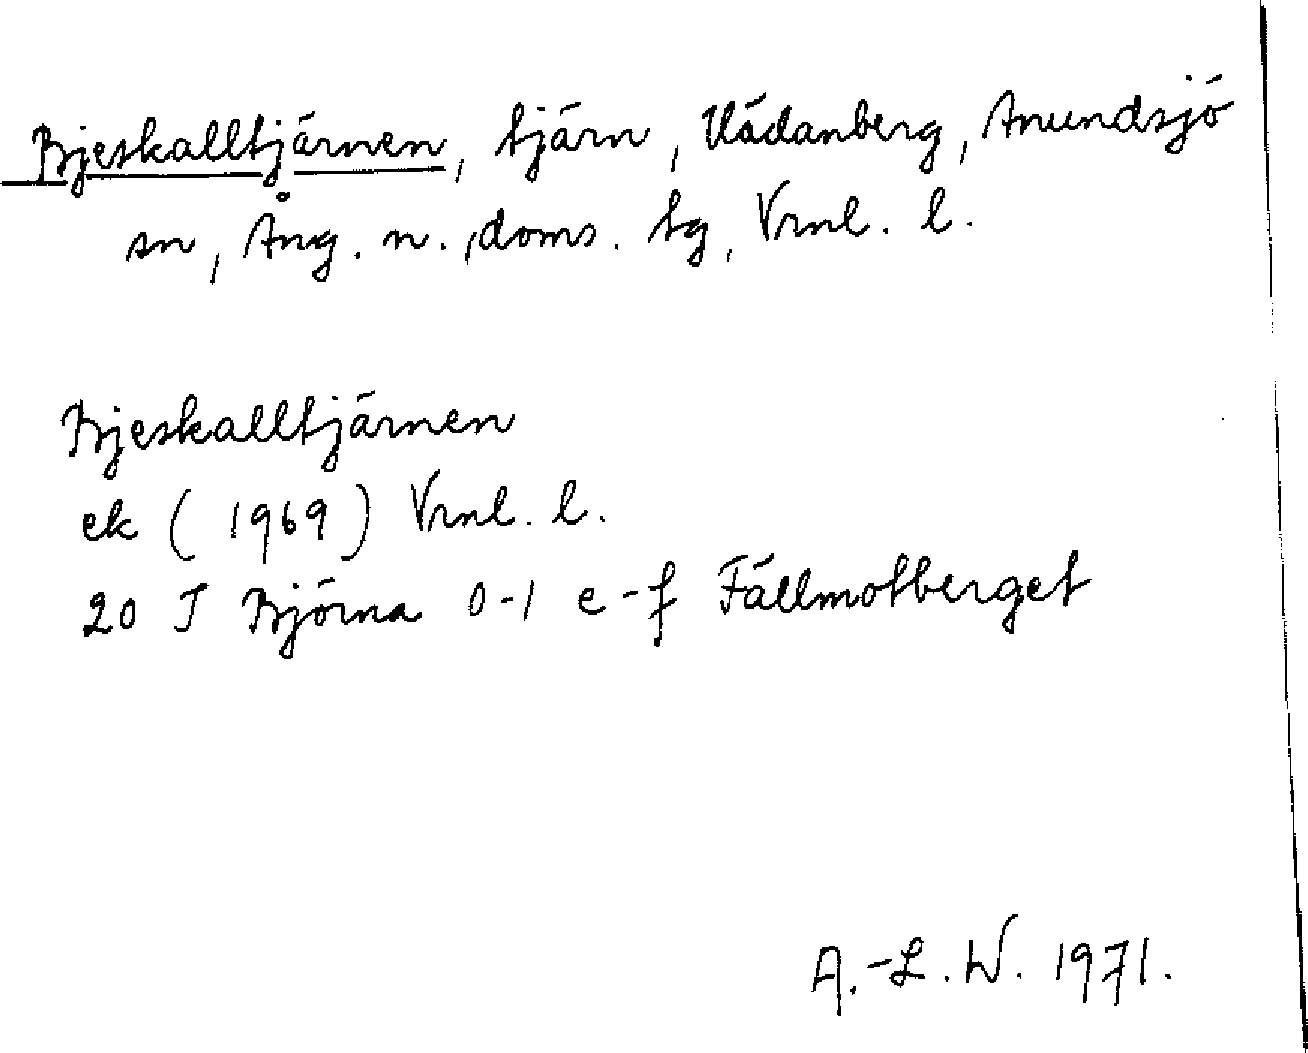 Bjeskalltjärnen, tjärn, Kädanberg, Anundsjö
sn, Ång. n., doms. tg, Vrml. l.
Bjeskalltjärnen
ek (1969) Vrml. l.
20 J Björna 0-1 e-f Fällmotberget
A.-L. W. 1971.